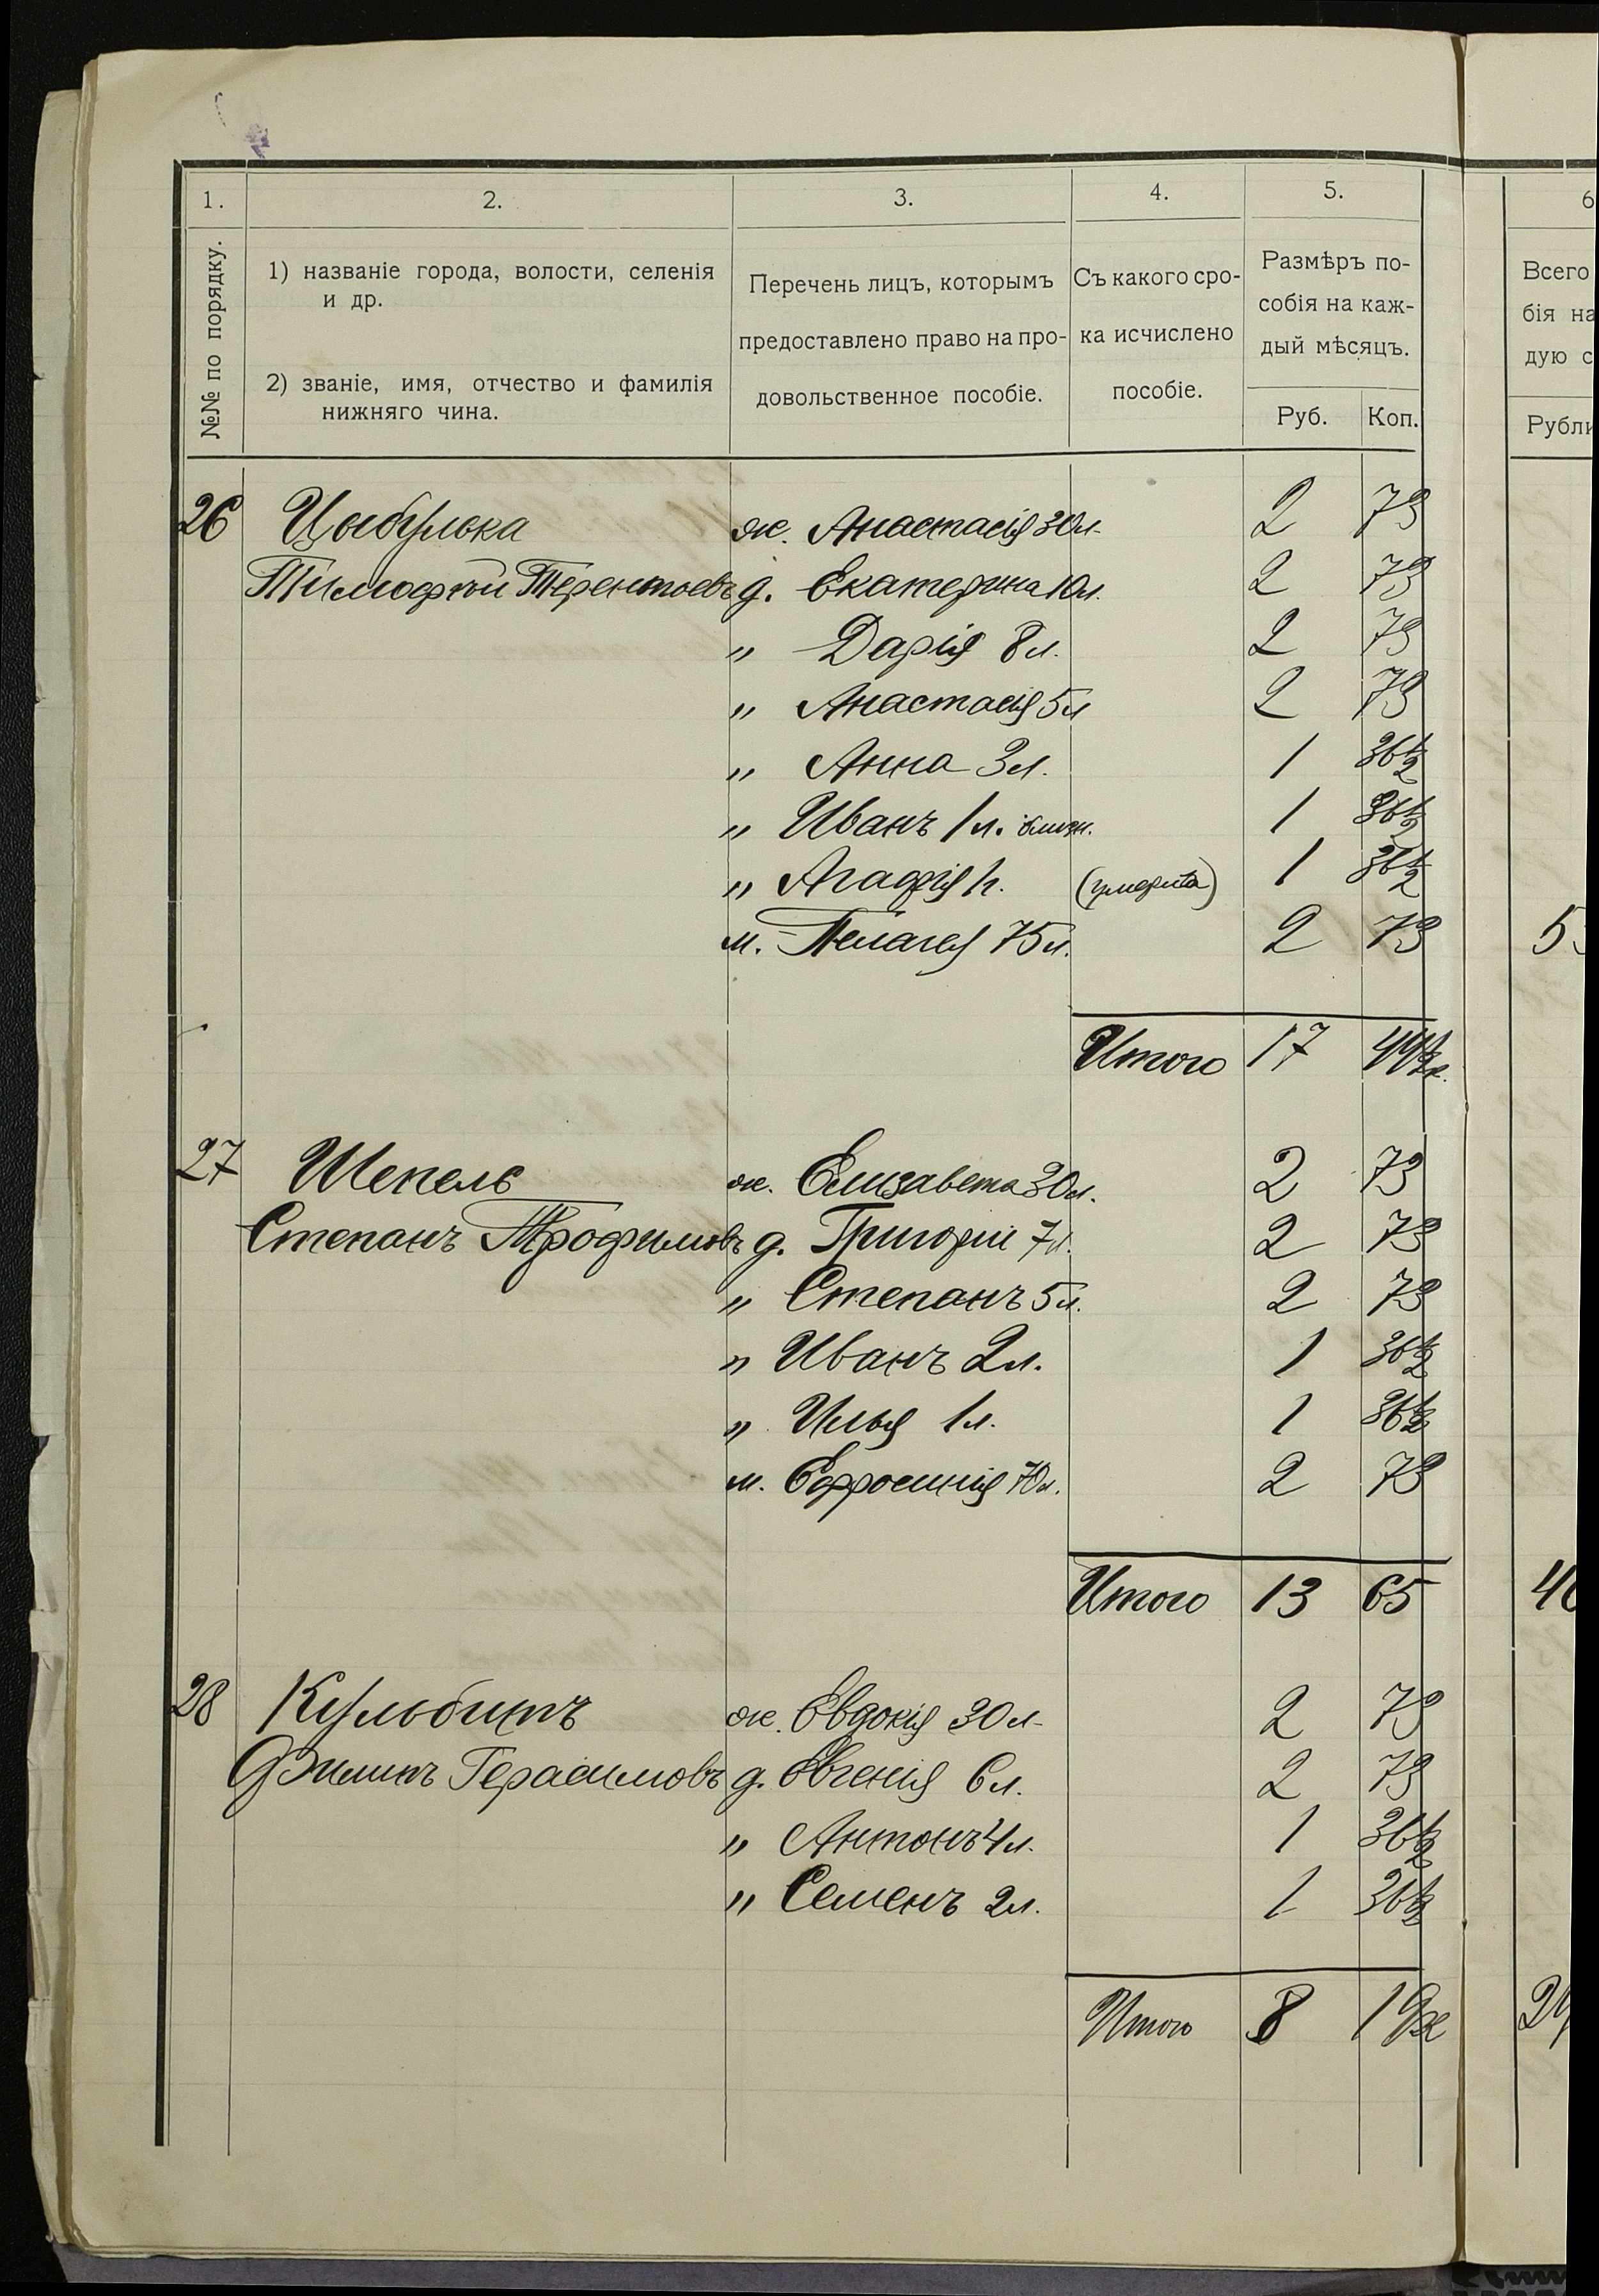 1. 2. 3. 4. 5. 6
№№ по порядку.
1) названіе города, волости, селенія
и др.
2) званіе, имя, отчество и фамилія
нижняго чина.
Перечень лицъ, которымъ
предоставлено право на про-
довольственное пособіе.
Съ какого сро-
ка исчислено
пособіе.
Размѣръ по-
собія на каж-
дый мѣсяцъ.
Руб. Коп.
Всего
бія на
дую с
Рубли
26 Цыбулька ж. Анастасія 30 л. 2 73
Тимофѣй Терентьевъ д. Екатерина 10 л. 2 73
" Дарія 8 л. 2 73
" Анастасія 5 л 2 73
" Анна 3 л. 1 36 1/2
" Иванъ 1 л. близн. 1 36 1/2
" Агафія 1 г. (умерла) 1 36 1/2
м. Пелагея 75 л. 2 73 5
Итого 17 74 1/2 к.
27 Шепель ж. Елизавета 30 л. 2 73
Степанъ Трофимовъ д. Григорій 7 л. 2 73
" Степанъ 5 л. 2 73
" Иванъ 2 л. 1 36 1/2
" Илья 1 л. 1 36 1/2
м. Ефросинія 70 л. 2 73
Итого 13 65 40
28 Кульбитъ ж. Евдокія 30 л. 2 73
Филипъ Герасимовъ д. Евгенія 6 л. 2 73
" Антонъ 4 л. 1 36 1/2
" Семенъ 2 л. 1 36 1/2
Итого 8 19 к 24